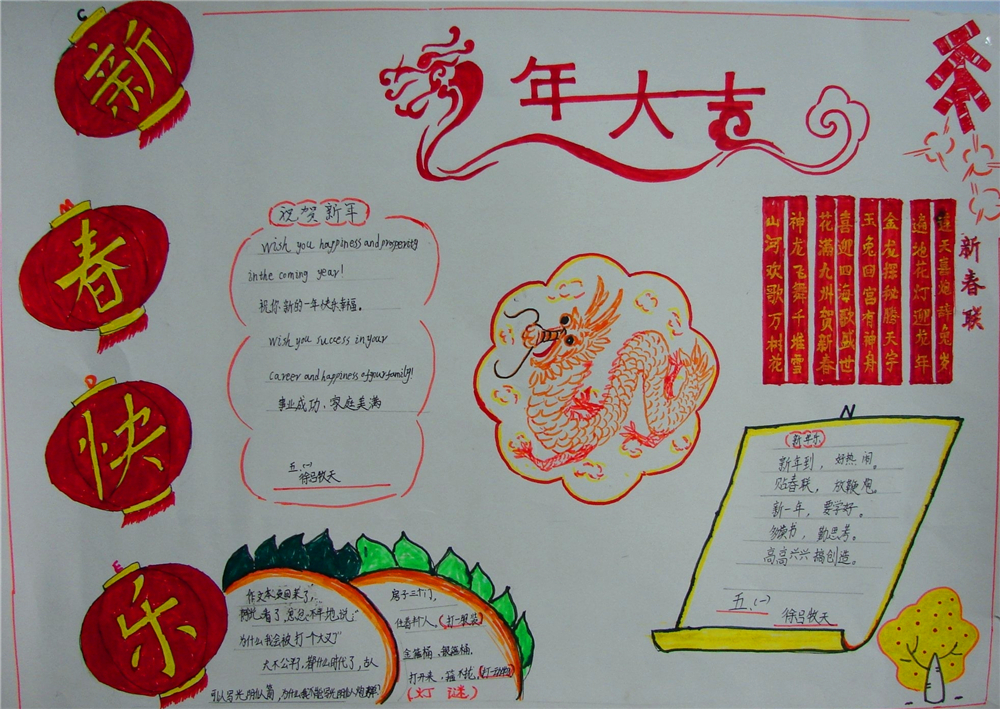 新
春
快
乐
年大吉
祝贺新年
Wish you happiness and prosperity
in the coming year!
祝你新的一年快乐幸福。
Wish you success in your
career and happiness of your family!
事业成功，家庭美满
五、(一)
徐吕牧天
新春联
连天喜炮辞兔岁
遍地花灯迎龙年
金龙探秘腾天宇
玉兔回宫有神舟
喜迎四海歌盛世
花满九州贺新春
神龙飞舞千堆雪
山河欢歌万树花
新年乐
新年到，好热闹。
贴春联，放鞭炮。
新一年，要学好。
多读书，勤思考。
高高兴兴搞创造。
五、(一)
徐吕牧天
作文本发回来了，
为什么我会被打一个大叉？
太不公平，都什么时代了，古人
房子三十门，
住着一人。(打一服装)
金箍桶，银箍桶，
打开来，箍不拢，
(灯谜)